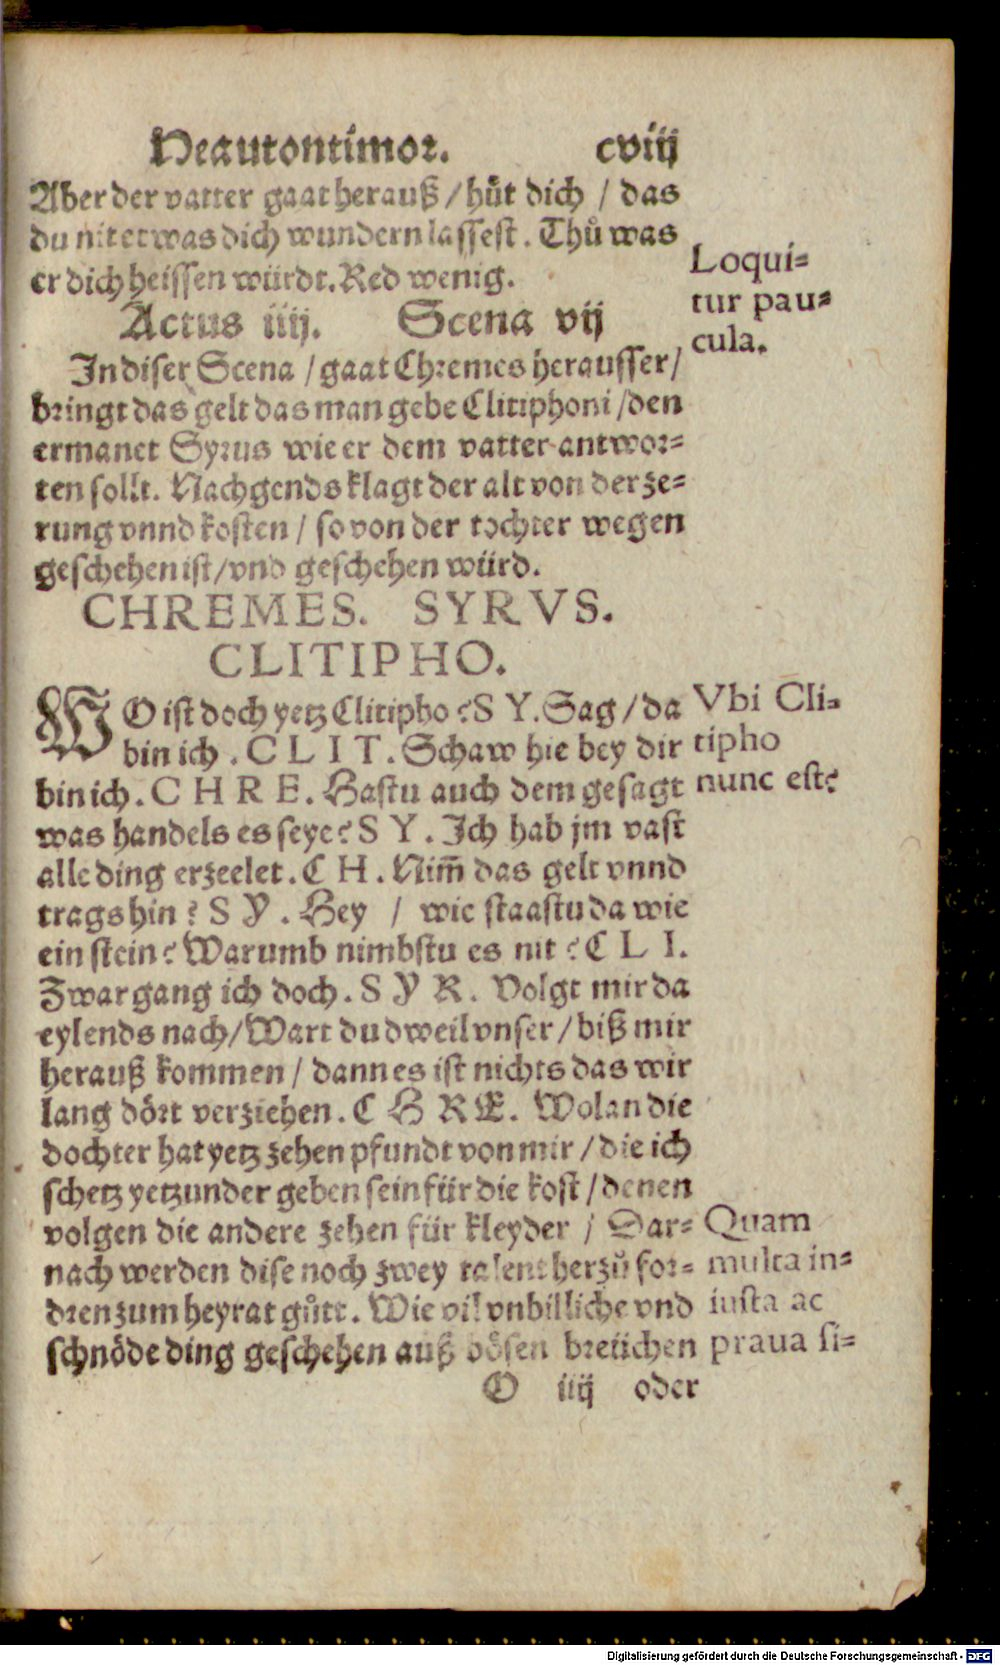 Heautontimor. cviij
Aber der vatter gaat herauß / hüt dich / das
du nit etwas dich wundern lassest. Thů was
er dich heissen würdt. Red wenig.
Loqui=
tur pau=
cula.
Actus iiij. Scena vij
In diser Scena / gaat Chremes herausser /
bringt das gelt das man gebe Clitiphoni / den
ermanet Syrus wie er dem vatter antwor=
ten sollt. Nachgends klagt der alt von der ze=
rung vnnd kosten / so von der tochter wegen
geschehen ist / vnd geschehen würd.
CHREMES. SYRVS.
CLITIPHO.
WO ist doch yetz Clitipho? SY. Sag / da
bin ich. CLIT. Schaw hie bey dir
bin ich. CHRE. Hastu auch dem gesagt
was handels es seye? SY. Ich hab jm vast
alle ding erzeelet. CH. Nim̃ das gelt vnnd
trags hin? SY. Hey / wie staastu da wie
ein stein? Warumb nimbstu es nit? CLI.
Zwar gang ich doch. SYR. Volgt mir da
eylends nach / Wart du dweil vnser / biß mir
herauß kommen / dann es ist nichts das wir
lang dört verziehen. CHRE. Wolan die
dochter hat yetz zehen pfundt von mir / die ich
schetz yetzunder geben sein für die kost / denen
volgen die andere zehen für kleyder / Dar=
nach werden dise noch zwey talent herzů for=
dren zum heyrat gůtt. Wie vil vnbilliche vnd
schnöde ding geschehen auß bösen breüchen
Vbi Cli=
tipho
nunc est?
Quam
multa in=
iusta ac
praua fi=
O iiij oder
Digitalisierung gefördert durch die Deutsche Forschungsgemeinschaft - DFG